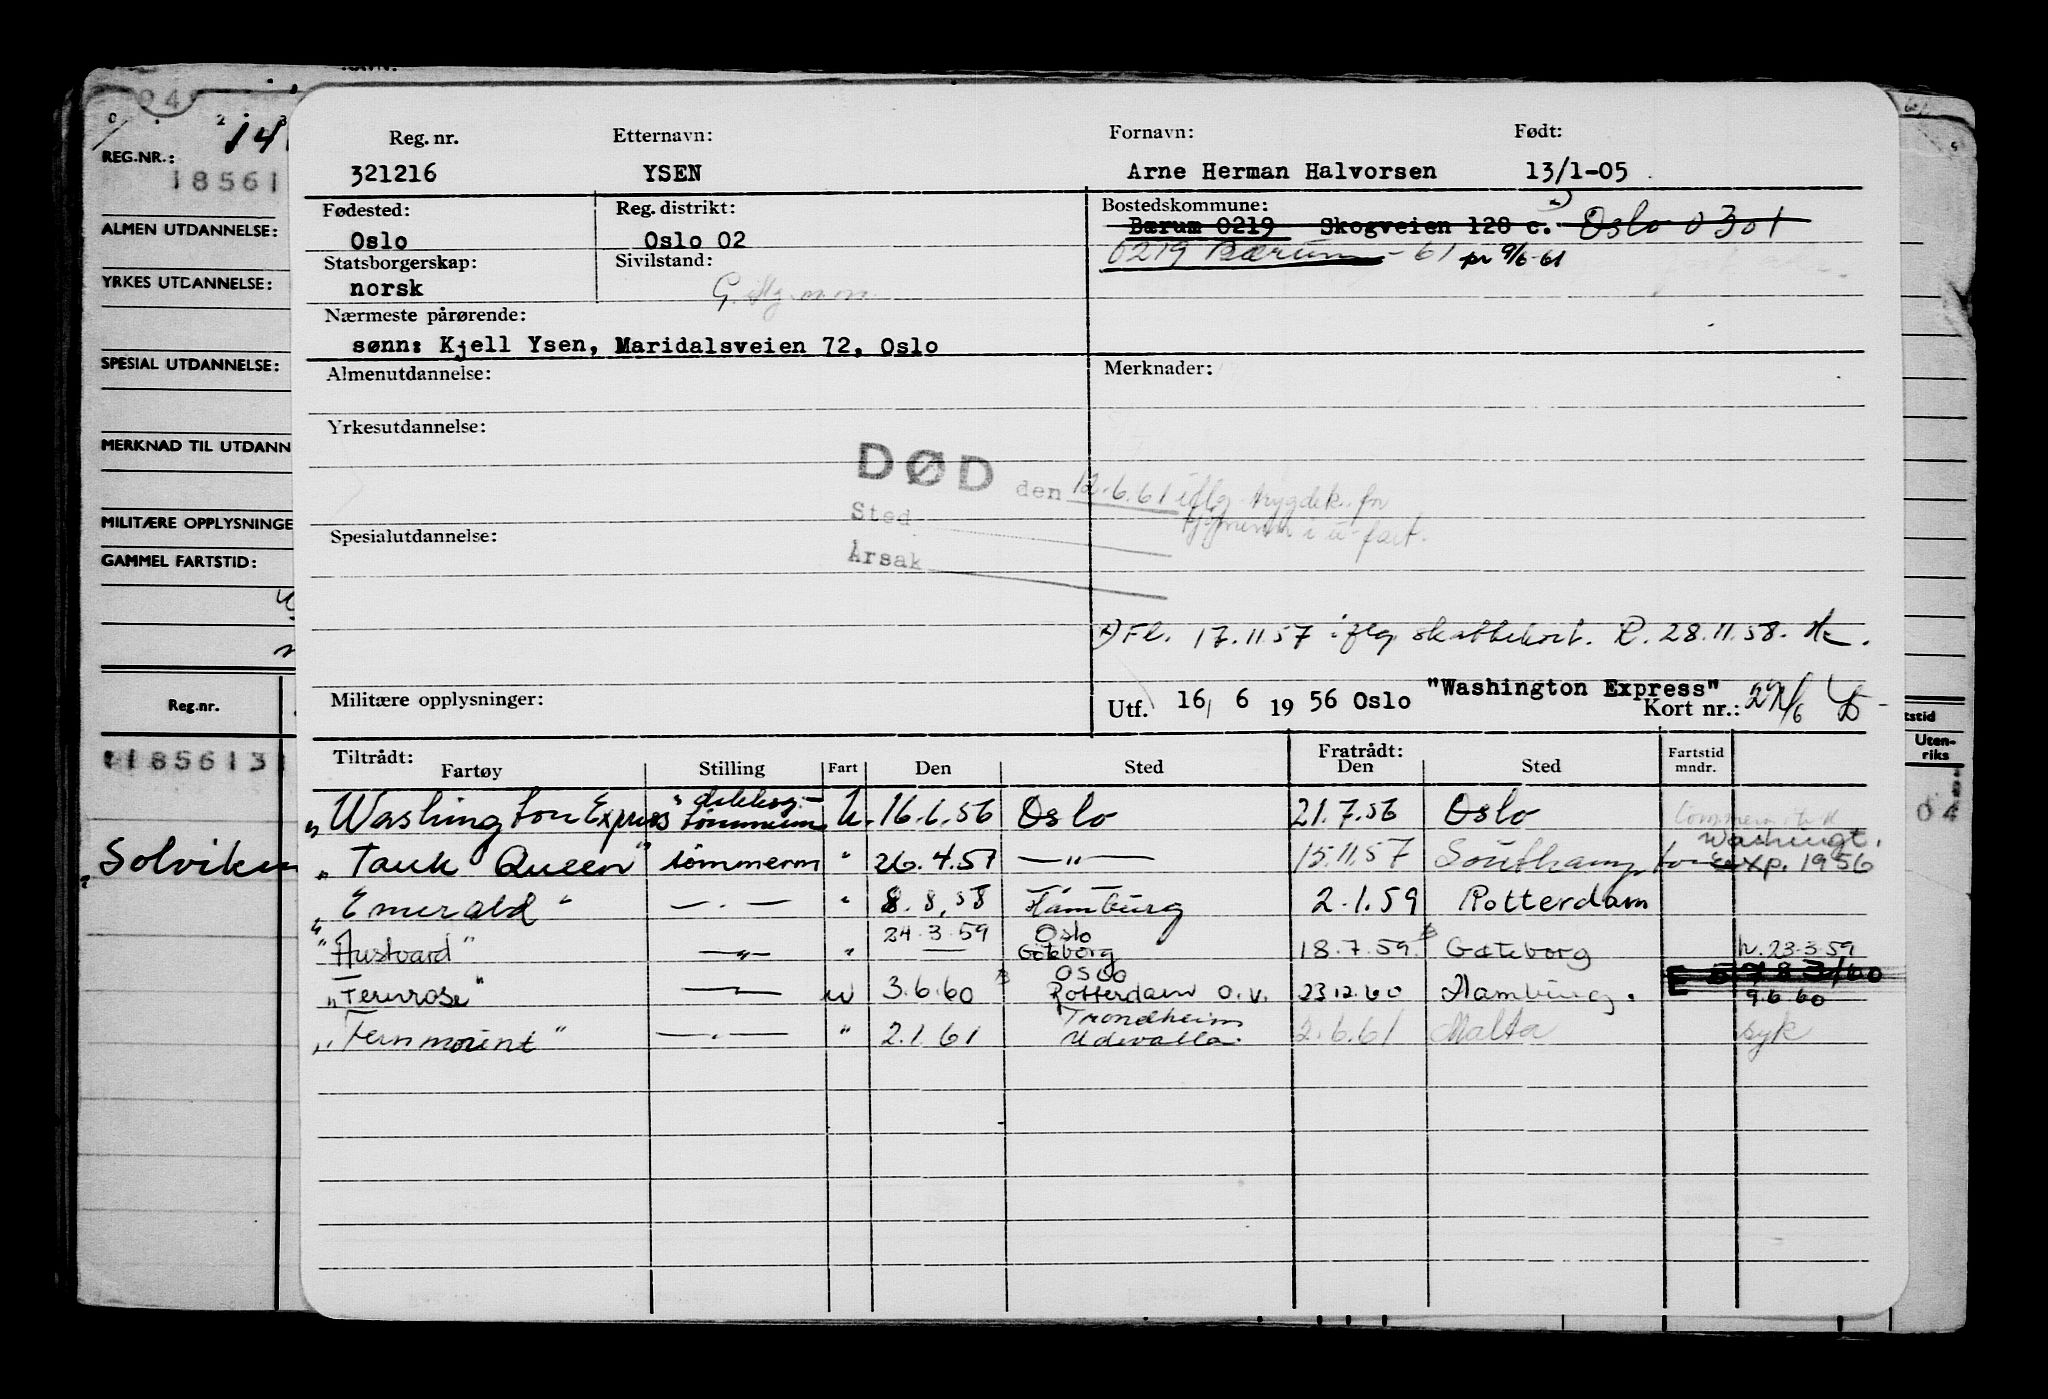 Reg. nr. Etternavn: Fornavn: Født:
321216 YSEN Arne Herman Halvorsen 13/1-05
Fødested: Reg. distrikt: Bostedskommune:
Oslo Oslo 02 Bærum 0219 Skogveien 128 c. Oslo 0301
Statsborgerskap: Sivilstand: 0219 Bærum - 61 pr 9/6-61
norsk G.
Nærmeste pårørende:
sønn: Kjell Ysen, Maridalsveien 72, Oslo
Almenutdannelse: Merknader:
Yrkesutdannelse:
DØD den 12.6.61 iflg. trygdek. for
sjømenn i u-fart.
Sted
Årsak
Spesialutdannelse:
x) Fl. 17.11.57 iflg skattekort. R. 28.11.58.
Militære opplysninger: Utf. 16/ 6 19 56 Oslo "Washington Express" Kort nr.:
Tiltrådt: Fratrådt: Fartstid
Fartøy Stilling Fart Den Sted Den Sted mndr.
"Washington Express" dekksg.-tømmerm. u. 16.6.56 Oslo 21.7.56 Oslo
"Tank Queen" tømmerm " 26.4.57 —"— 15.11.57 Southampton Washingt. Exp. 1956
"Emerald" —"— " 8.8.58 Hamburg 2.1.59 Rotterdam
"Hustvard" —"— " 24.3.59 Oslo Göteborg 18.7.59 Gøteborg h. 23.3.59
"Ternrose" —"— u 3.6.60 Oslo Rotterdam o.v. 23.12.60 Hamburg. 9.6.60
"Fernmount" —"— " 2.1.61 Trondheim Udevalla. 2.6.61 Malta syk
REG.NR.:
18561
ALMEN UTDANNELSE:
YRKES UTDANNELSE:
SPESIAL UTDANNELSE:
MERKNAD TIL UTDANN
MILITÆRE OPPLYSNINGE
GAMMEL FARTSTID:
Reg.nr.
185613
Solvik
tstid
Uten-
riks
04